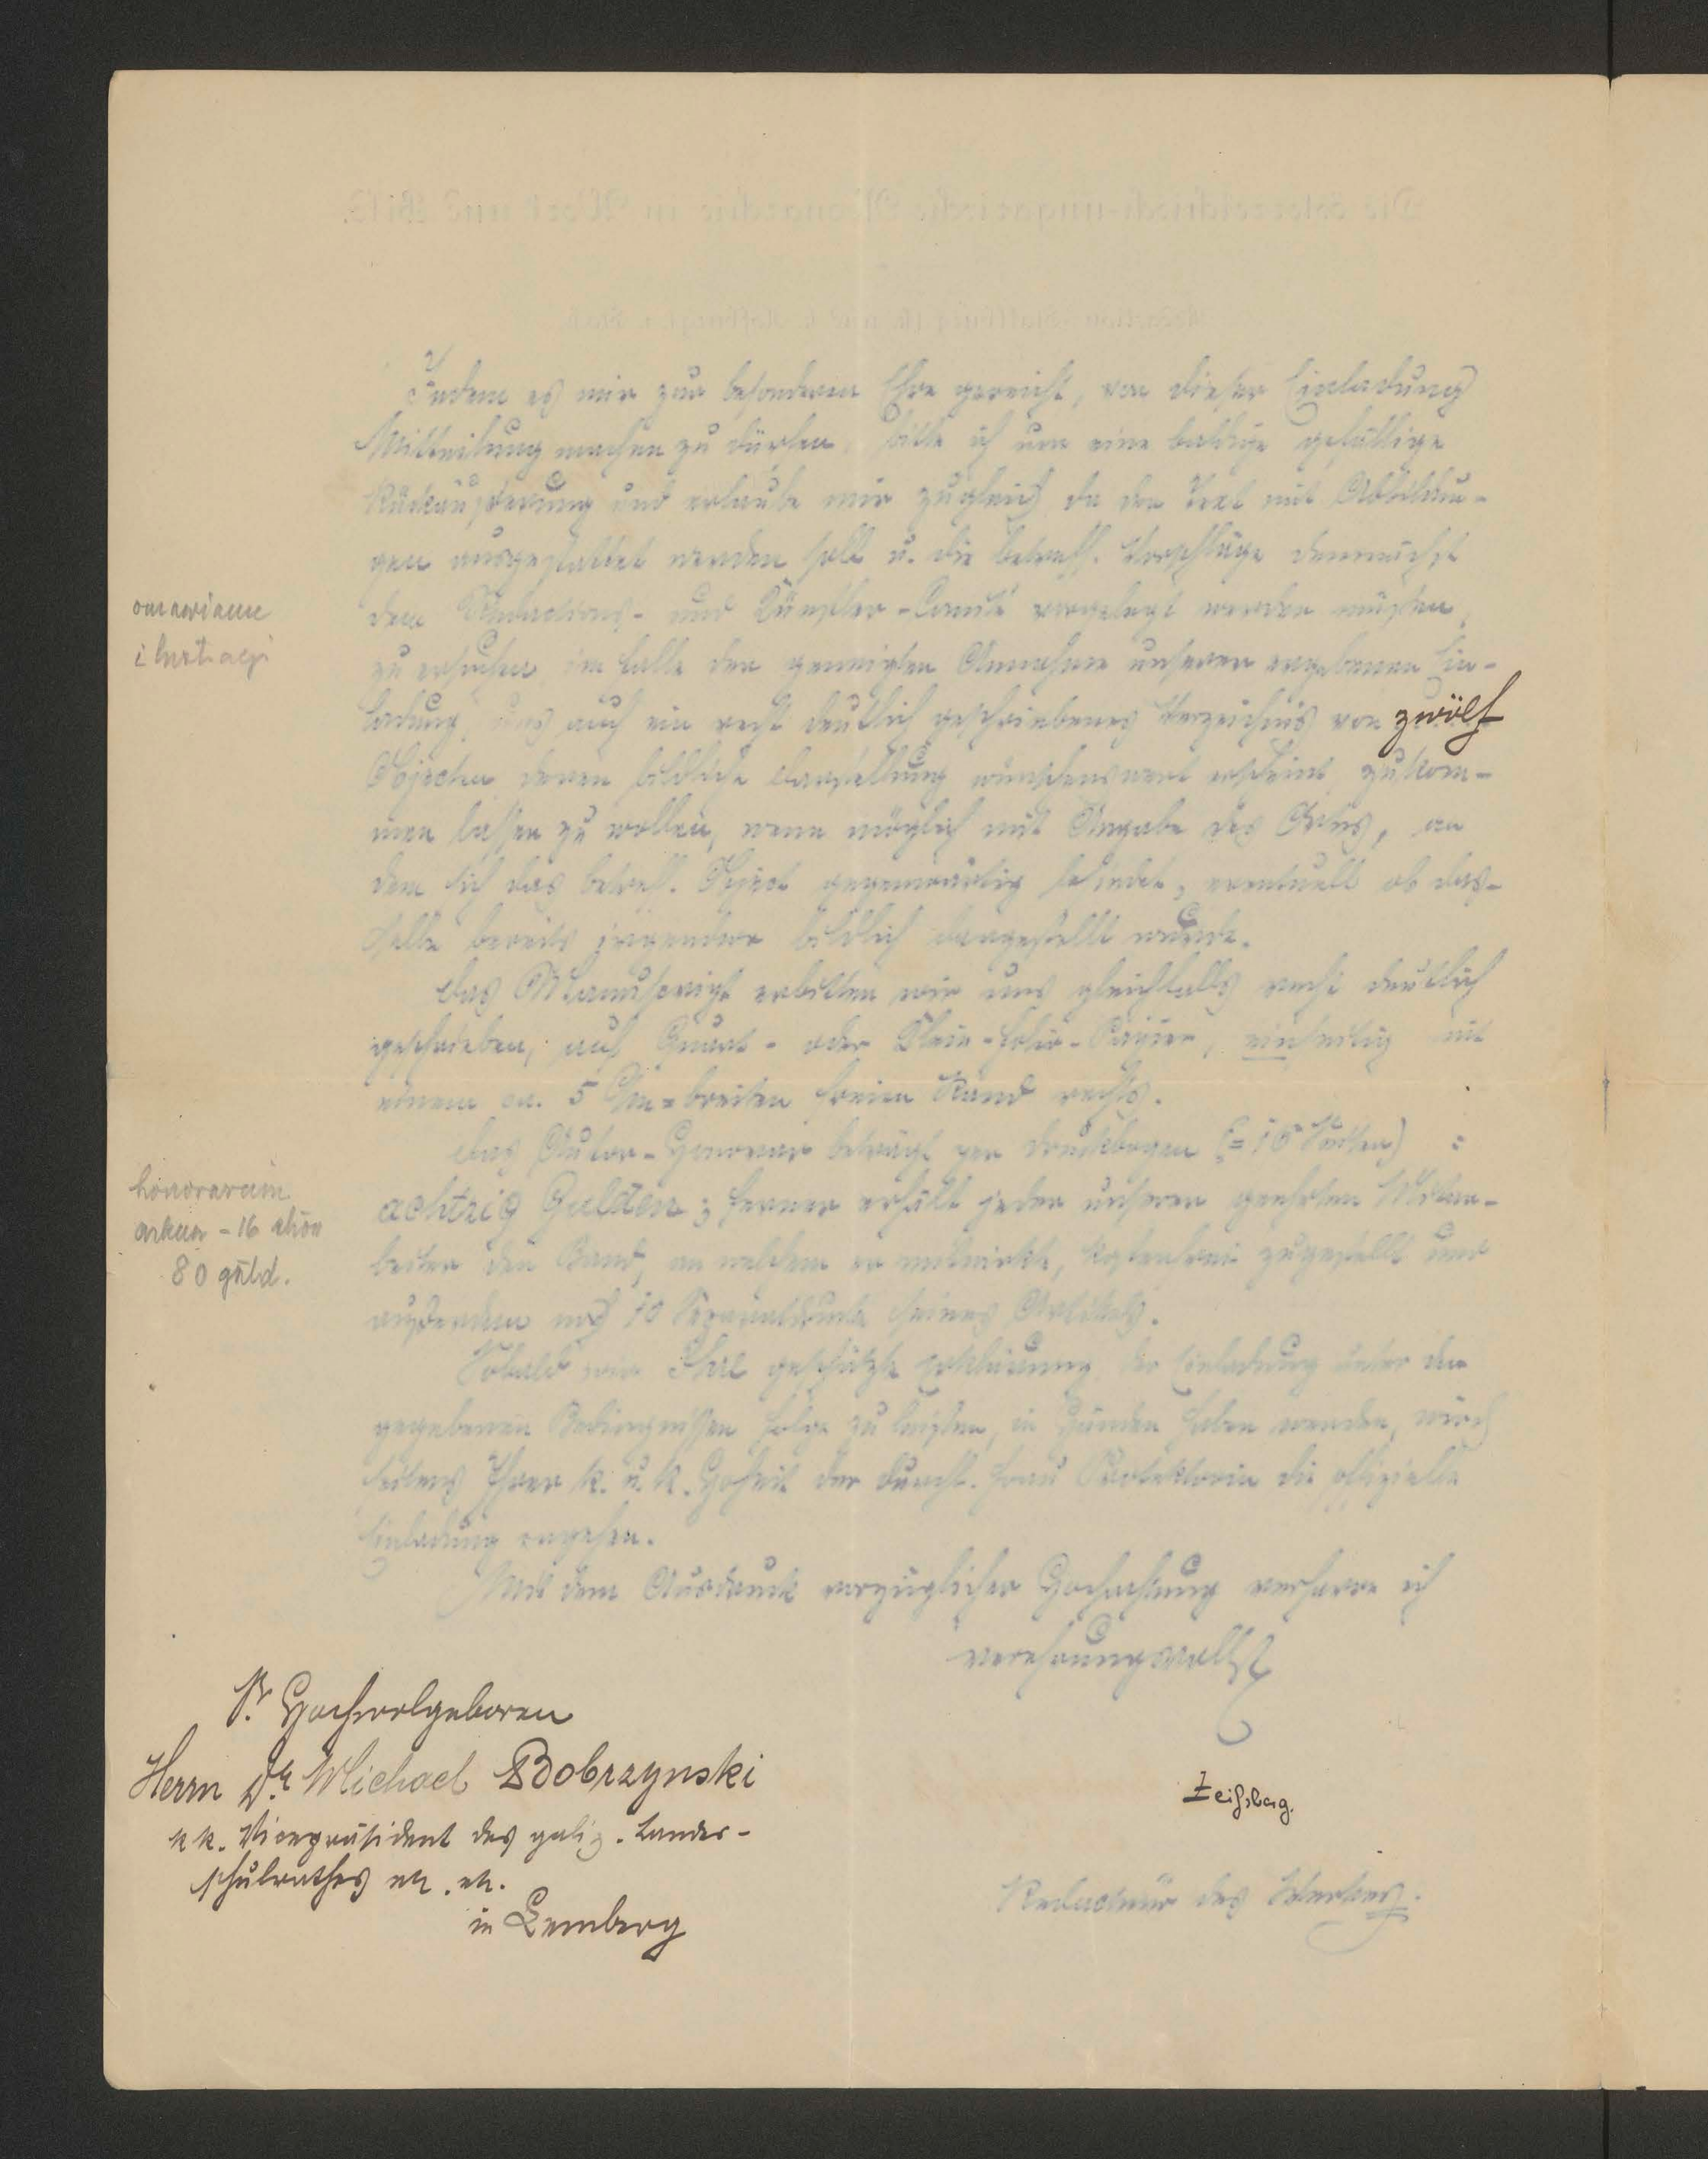 Indem es mir zur besonderen Ehre gereicht, von dieser Einladung
Mitteilung machen zu dürfen, bitte ich um eine baldige gefällige
Rückäußerung und erlaube mir zugleich, da der Text mit Abbildun-
gen ausgestattet werden soll u. die betreff. Vorschläge demnächst
dem Redactions- und Künstler-Comité vorgelegt werden müssen,
zu ersuchen, im Falle der geneigten Annahme unserer ergebenen Ein-
ladung, uns auch ein recht deutlich geschriebenes Verzeichnis von zwölf
Objecten, deren bildliche Darstellung wünschenswert erscheint, zukom-
men lassen zu wollen, wenn möglich mit Angabe des Ortes, an
dem sich das betreff. Object gegenwärtig befindet, eventuell ob das-
selbe bereits irgendwo bildlich dargestellt wurde.
Das Manuscript erbitten wir uns gleichfalls recht deutlich
geschrieben, auf Quart- oder Klein-Folio-Papier, einseitig mit
einem ca. 5 Cm-breiten freien Rand rechts.
Das Autor-Honorar beträgt per Druckbogen (= 16 Seiten) :
achtzig Gulden; ferner erhält jeder unserer geehrten Mitar-
beiter den Band, an welchem er mitwirkt, kostenfrei zugestellt und
außerdem noch 10 Separatdrucke seines Artikels.
Sobald wir Ihre geschätzte Erklärung, der Einladung unter den
gegebenen Bedingnissen Folge zu leisten, in Händen haben werden, wird
seitens Ihrer k. u. k. Hoheit der durchl. Frau Protektorin die offizielle
Einladung ergehen.
Mit dem Ausdruck vorzüglicher Hochachtung verharre ich
verehrungsvollst
Zeißberg.
Redacteur des Werkes.
Sr Hochwolgeboren
Herrn Dr. Michael Bobrzynski
kk. Vicepräsident des galiz. Landes-
schulrathes etc. etc.
in Lemberg
honorarium
arkusz - 16 stron
80 guld.